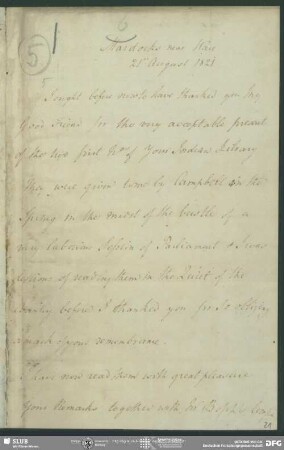 6
5
Mardocks near Ware
21st August 1821
I ought before now to have thanked you my
Good Friend for the very acceptable present
of the two first Nos of Your Indian Library
They were given me by Campbell in the
Spring in the midst of the bustle of a
very laborious Session of Parliament & I was
desirous of reading them in the Quiet of the
Country before I thanked you for so
a mark of your remembrance.
I have now read them with great pleasure
Your Remarks together with
SLUB
DFG